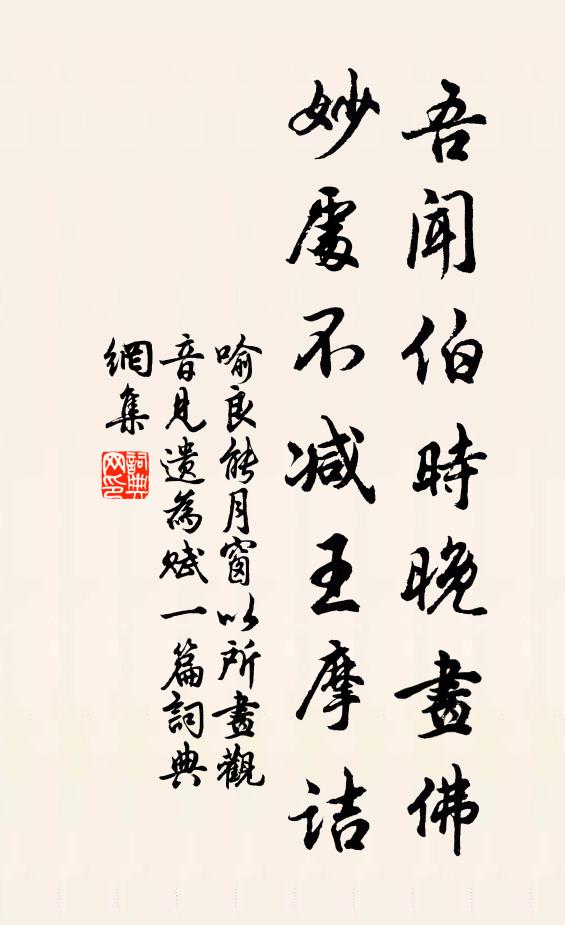 吾聞伯時晚畫佛
妙處不減王摩詰
喻良能月窗以所畫觀
音見遺為賦一篇詞典
網集
詞典
网印